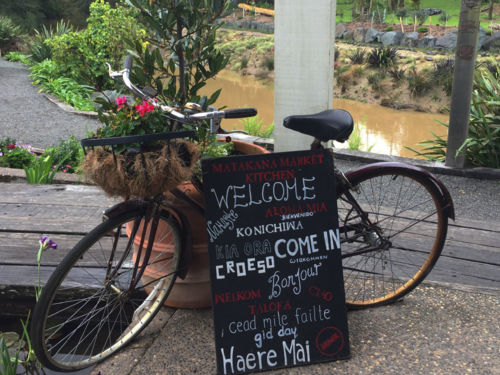 MATAKANA MARKET
KITCHEN
WELCOME
ALOHA MIA
Namaste
BIENVENIDO
KONICHIWA
KIA ORA COME IN
CROESO
Bonjour
WELKOM
CIAO
TALOFA
cead mile failte
gid day
Haere Mai